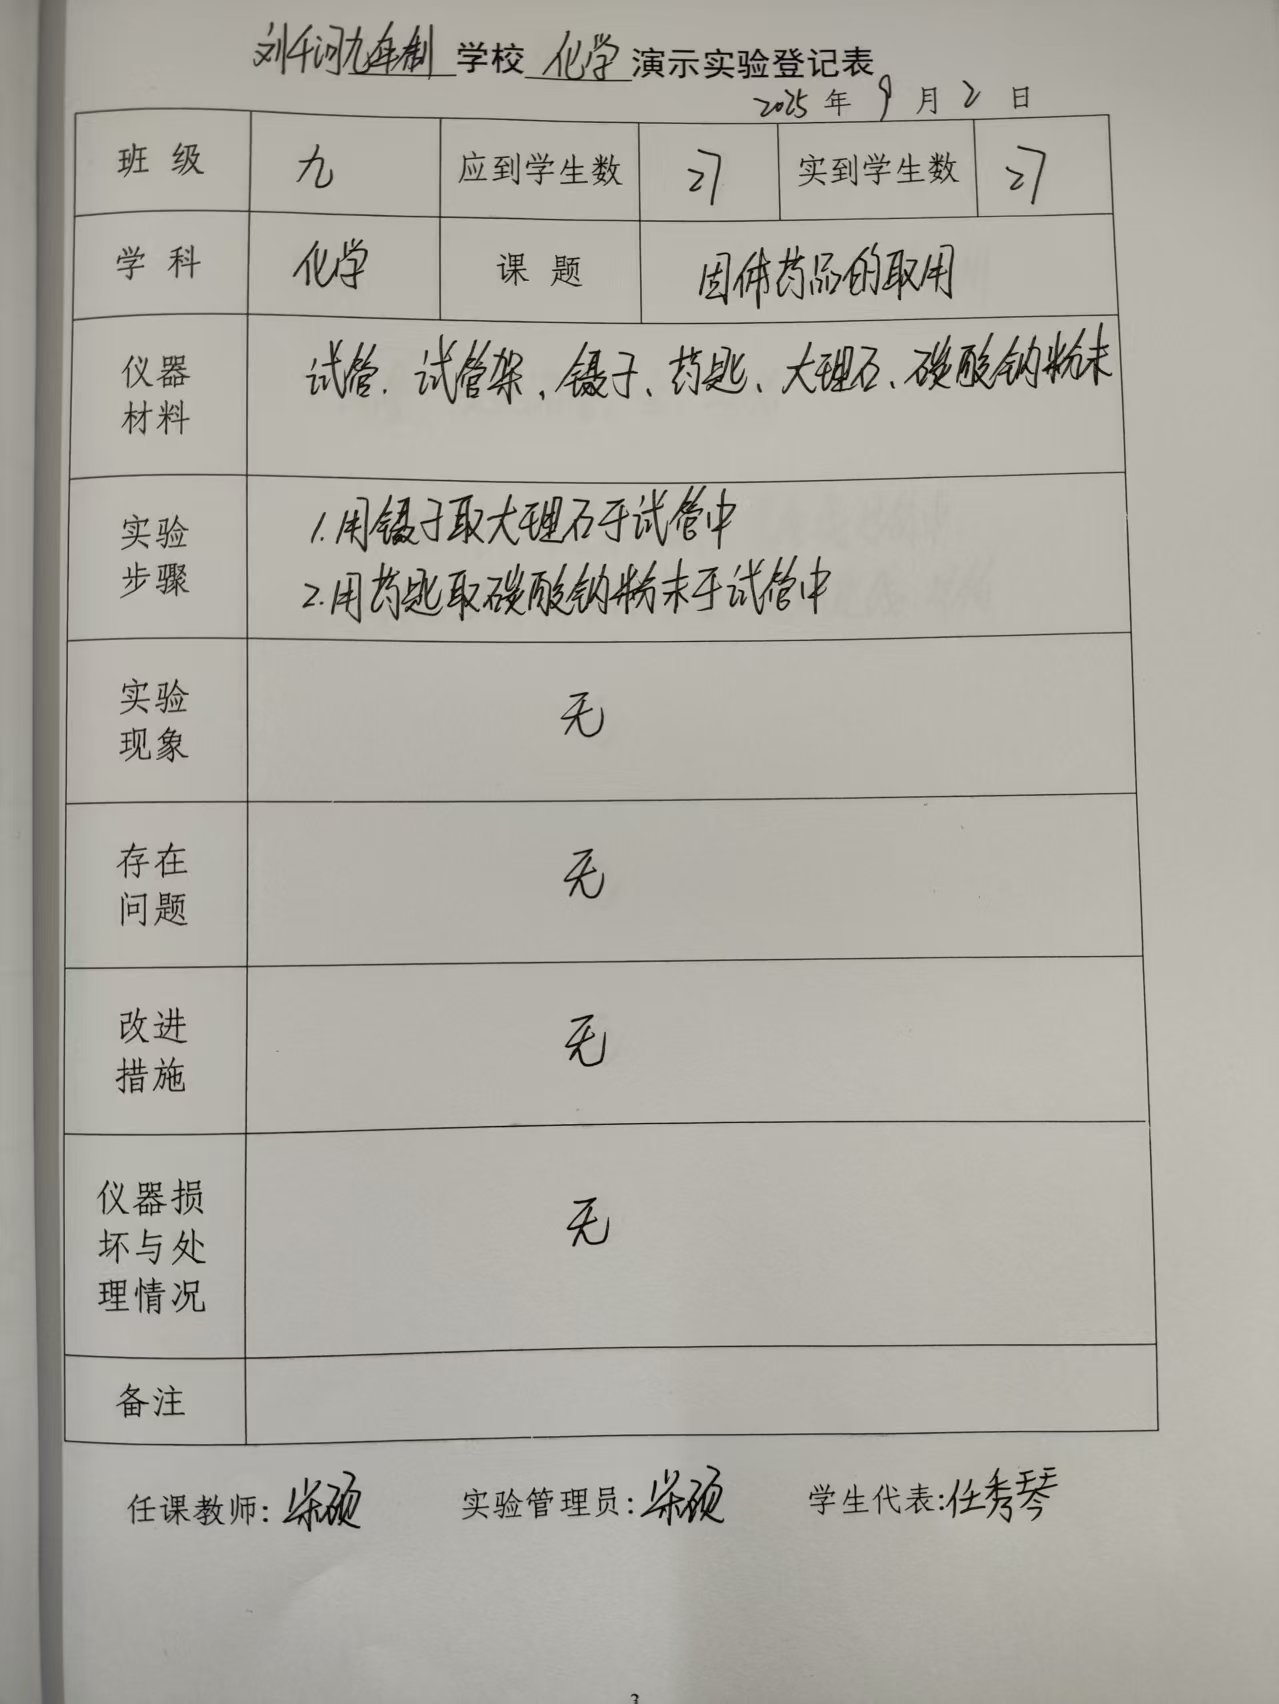 刘千河九年制学校 化学 演示实验登记表
2025年9月2日
班级 九 应到学生数 27 实到学生数 27
学科 化学 课题 固体药品的取用
仪器
材料
试管、试管架、镊子、药匙、大理石、碳酸钠粉末
实验
步骤
1.用镊子取大理石于试管中
2.用药匙取碳酸钠粉末于试管中
实验
现象
无
存在
问题
无
改进
措施
无
仪器损
坏与处
理情况
无
备注
任课教师: 实验管理员: 学生代表:任秀琴
3